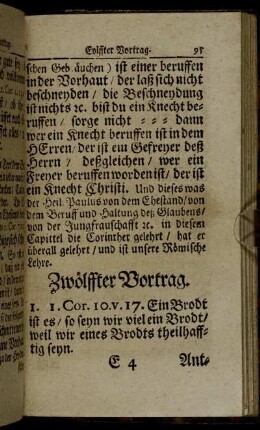 Eylffter Vortrag. 95
schen Geb äuchen) ist einer beruffen
in der Vorhaut / der laß sich nicht
beschneyden / die Beschneydung
ist nichts ꝛc. bist du ein Knecht be-
ruffen / sorge nicht = = = dann
wer ein Knecht beruffen ist in dem
HErren / der ist ein Gefreyer deß
Herrn / deßgleichen / wer ein
Freyer beruffen worden ist / der ist
ein Knecht Christi. Und dieses was
der Heil. Paulus von dem Ehestand / von
dem Beruff und Haltung deß Glaubens /
von der Jungfrauschafft ꝛc. in diesem
Capittel die Corinther gelehrt / hat er
überall gelehrt / und ist unsere Römische
Lehre.
Zwölffter Vortrag.
1. 1. Cor. 10. v. 17. Ein Brodt
ist es / so seyn wir viel ein Brodt /
weil wir eines Brodts theilhaff-
tig seyn.
E 4 Ant-